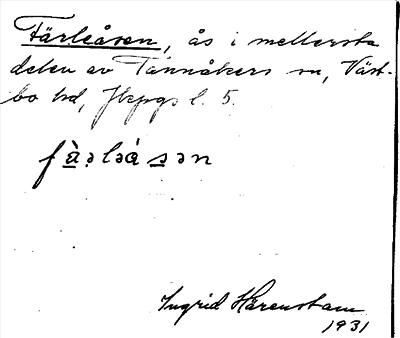 Färleåsen, ås i mellersta
delen av Tannåkers sn, Väst-
bo hd, Jkpgs l. 5.
fàəleá sən
Ingrid Härenstam
1931